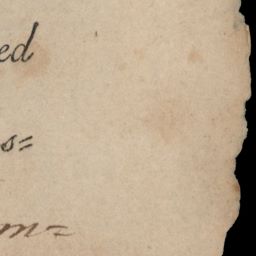 ed
s=
m=